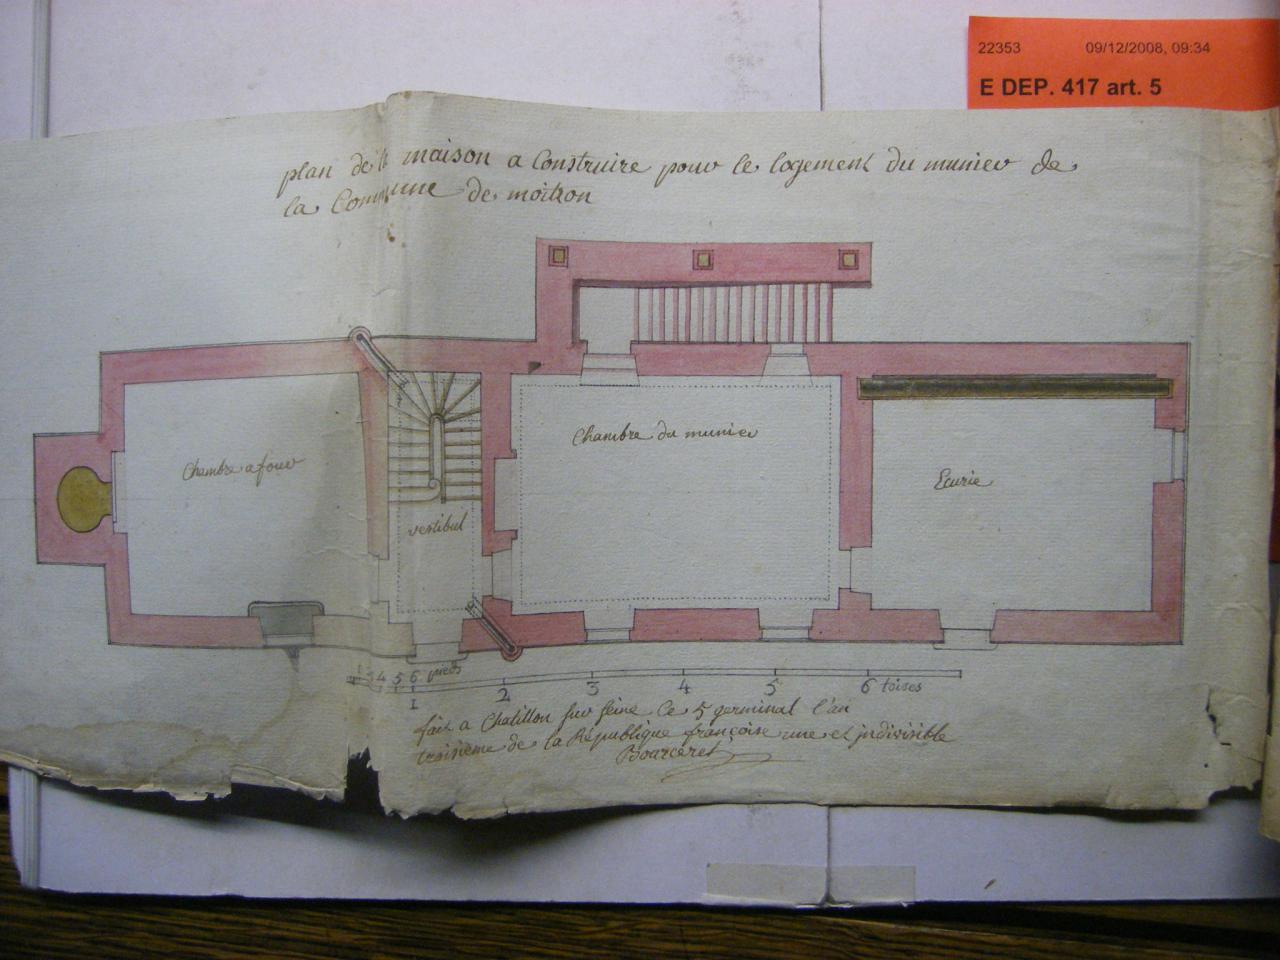 22353 09/12/2008, 09:34
E DEP. 417 art. 5
plan de la maison a Construire pour le logement du munier de
la Commune de moitron
Chambre a four
vestibul
Chambre du munier
Ecurie
1 3 4 5 6 pieds
1 2 3 4 5 6 toises
fait a Chatillon sur seine Ce 5 germinal l'an
troisieme de la République françoise une et indivisible
Bourceret